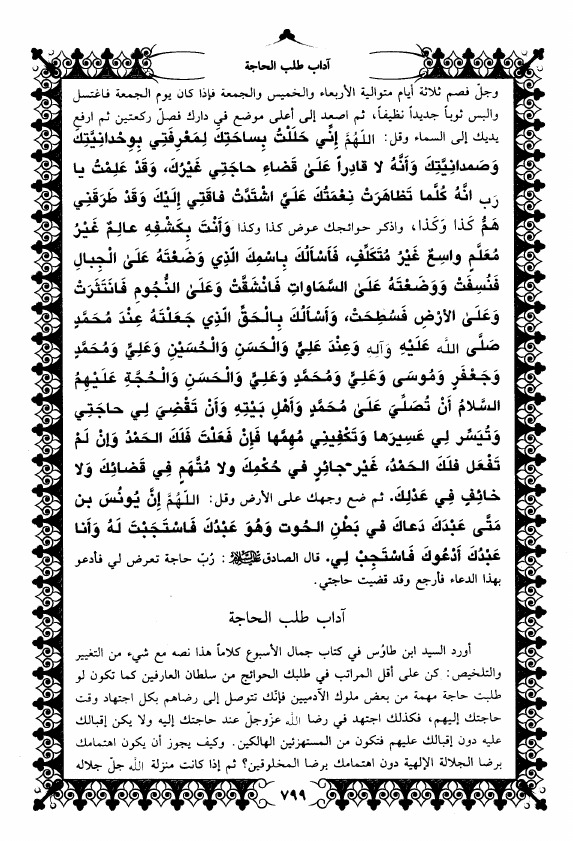 آداب طلب الحاجة
وجلّ فصم ثلاثة أيام متوالية الأربعاء والخميس والجمعة فإذا كان يوم الجمعة فاغتسل
والبس ثوباً جديداً نظيفاً، ثم اصعد إلى أعلى موضع في دارك فصلّ ركعتين ثم ارفع
يديك إلى السماء وقل: اللهُمَّ إِنِّي حَلَلْتُ بِساحَتِكَ لِمَعْرِفَتِي بِوِحْدانِيَّتِكَ
وَصَمدانِيَّتِكَ وَأَنَّهُ لا قادِراً عَلىٰ قَضاءِ حاجَتِي غَيْرُكَ، وَقَدْ عَلِمْتُ يا
رَب انَّهُ كُلَّما تَظاهَرَتْ نِعْمَتُكَ عَلَيَّ اشْتَدَّتْ فاقَتِي إِلَيْكَ وَقَدْ طَرَقَنِي
هَمُّ كَذا وَكَذا، واذكر حوائجك عوض كذا وكذا وَأَنْتَ بِكَشْفِهِ عالِمٌ غَيْرُ
مُعَلَّمٍ واسِعٌ غَيْرُ مُتَكَلِّفٍ، فَأَسْأَلُكَ بِاسْمِكَ الَّذِي وَضَعْتَهُ عَلىٰ الْجِبالِ
فَنُسِفَتْ وَوَضَعْتَهُ عَلىٰ السَّماواتِ فَانْشَقَّتْ وَعَلىٰ النُّجُومِ فَانْتَثَرَتْ
وَعَلىٰ الأَرْضِ فَسُطِحَتْ، وَأَسْأَلُكَ بِالْحَقِّ الَّذِي جَعَلْتَهُ عِنْدَ مُحَمَّدٍ
صَلّى الله عَلَيْهِ وَآلِهِ وَعِنْدَ عَلِيٍّ وَالْحَسَنِ وَالْحُسَيْنِ وَعَلِيٍّ وَمُحَمَّدٍ
وَجَعْفَرٍ وَمُوسىٰ وَعَلِيٍّ وَمُحَمَّدٍ وَعَلِيٍّ وَالْحَسَنِ وَالْحُجَّةِ عَلَيْهِمُ
السَّلامُ أَنْ تُصَلِّيَ عَلىٰ مُحَمَّدٍ وَأَهْلِ بَيْتِهِ وَأَنْ تَقْضِيَ لِي حاجَتِي
وَتُيَسِّرِ لِي عَسِيرَها وَتَكْفِيَنِي مُهِمَّها فَإِنْ فَعَلْتَ فَلَكَ الْحَمْدُ وَإِنْ لَمْ
تَفْعَل فَلَكَ الحَمْدُ، غَيْرَ جائِرٍ في حُكْمِكَ ولا مُتَّهَمٍ فِي قَضائِكَ وَلا
حَائِفٍ فِي عَدْلِكَ. ثم ضع وجهك على الأرض وقل: اللهُمَّ إِنَّ يُونُسَ بن
مَتَّى عَبْدَكَ دَعاكَ في بَطْنِ الحُوت وَهُوَ عَبْدُكَ فَاسْتَجَبْتَ لَهُ وَأَنا
عَبْدُكَ أَدْعُوكَ فَاسْتَجِبْ لِي. قال الصادق عَلَيْهِ السَّلام: رُبّ حاجة تعرض لي فأدعو
بهذا الدعاء فأرجع وقد قضيت حاجتي.
آداب طلب الحاجة
أورد السيد ابن طاوُس في كتاب جمال الأسبوع كلاماً هذا نصه مع شيء من التغيير
والتلخيص: كن على أقل المراتب في طلبك الحوائج من سلطان العارفين كما تكون لو
طلبت حاجة مهمة من بعض ملوك الآدميين فإنّك تتوصل إلى رضاهم بكل اجتهاد وقت
حاجتك إليهم، فكذلك اجتهد في رضا الله عزّوجلّ عند حاجتك إليه ولا يكن إقبالك
عليه دون إقبالك عليهم فتكون من المستهزئين الهالكين. وكيف يجوز أن يكون اهتمامك
برضا الجلالة الإلهية دون اهتمامك برضا المخلوقين؟ ثم إذا كانت منزلة الله جلّ جلاله
٧٩٩